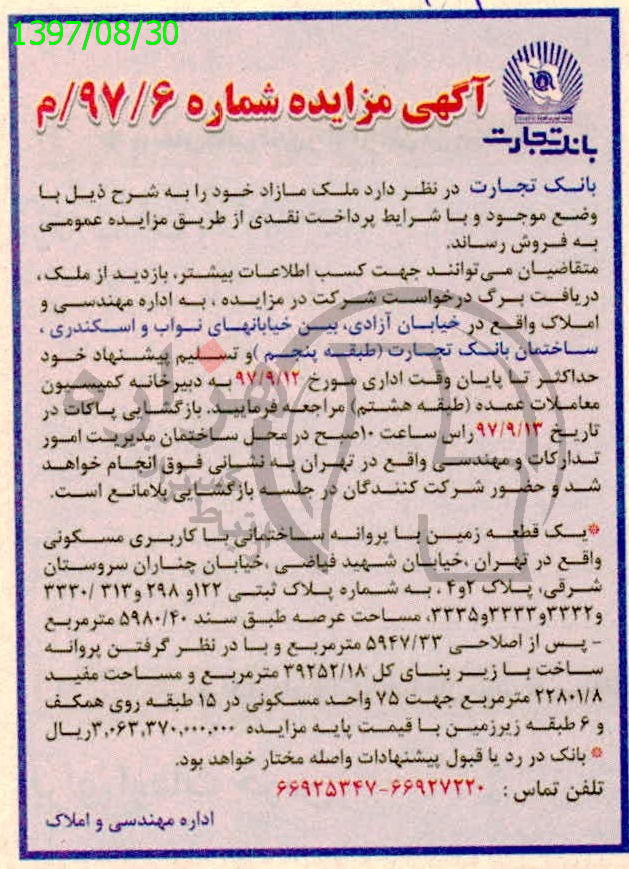 1397/08/30
آگهی مزایده شماره ۹۷/۶/م
بانک تجارت
بانک تجارت در نظر دارد ملک مازاد خود را به شرح ذیل با
وضع موجود و با شرایط پرداخت نقدی از طریق مزایده عمومی
به فروش رساند.
متقاضیان می‌توانند جهت کسب اطلاعات بیشتر، بازدید از ملک،
دریافت برگ درخواست شرکت در مزایده ، به اداره مهندسی و
املاک واقع در خیابان آزادی، بین خیابانهای نواب و اسکندری ،
ساختمان بانک تجارت (طبقه پنجم )و تسلیم پیشنهاد خود
حداکثر تا پایان وقت اداری مورخ ۹۷/۹/۱۲ به دبیرخانه کمیسیون
معاملات عمده (طبقه هشتم) مراجعه فرمایید. بازگشایی پاکات در
تاریخ ۹۷/۹/۱۳ راس ساعت ۱۰صبح در محل ساختمان مدیریت امور
تدارکات و مهندسی واقع در تهران به نشانی فوق انجام خواهد
شد و حضور شرکت کنندگان در جلسه بازگشایی بلامانع است.
*یک قطعه زمین با پروانه ساختمانی با کاربری مسکونی
واقع در تهران ،خیابان شهید فیاضی ،خیابان چناران سروستان
شرقی، پلاک ۲و۴ ، به شماره پلاک ثبتی ۱۲۲و ۲۹۸ و۳۱۳ /۳۳۳۰
و۳۳۳۲و۳۳۳۳و۳۳۳۵، مساحت عرصه طبق سند ۵۹۸۰/۴۰ مترمربع
- پس از اصلاحی ۵۹۴۷/۳۳ مترمربع و با در نظر گرفتن پروانه
ساخت با زیر بنای کل ۳۹۲۵۲/۱۸ مترمربع و مساحت مفید
۲۲۸۰۱/۸ مترمربع جهت ۷۵ واحد مسکونی در ۱۵ طبقه روی همکف
و ۶ طبقه زیرزمین با قیمت پایه مزایده ۳,۰۶۳,۳۷۰,۰۰۰,۰۰۰ریال
* بانک در رد یا قبول پیشنهادات واصله مختار خواهد بود.
تلفن تماس : ۶۶۹۲۷۲۲۰-۶۶۹۲۵۳۴۷
اداره مهندسی و املاک
هزاره